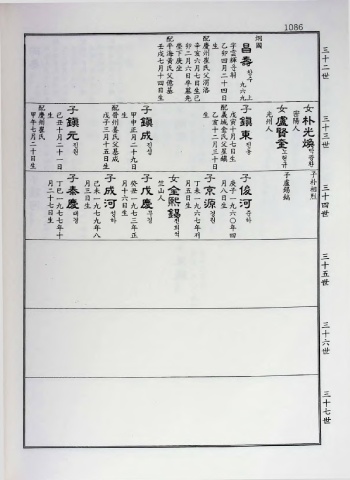 1086
三十二世
三十三世
三十四世
三十五世
三十六世
三十七世
炯國
昌壽 창수
上九六九
字雲輝号
乙卯四月二十四日
生
辛亥六月七日生己
卯二月六日卒墓先
塋下庚坐
配慶州崔氏父渭洛
配平海黃氏父億基
壬戌七月十四日生
女朴光燠 박광환
密陽人
女盧賢奎 노현규
光州人
子鎭東 진동
戊寅十月七日生
配義城金氏父星鎭
乙亥十二月三十日
生
子鎭成 진성
甲申正月二十九日
生
配晉州姜氏父基成
戊子三月十五日生
子鎭元 진원
己丑十月二十一日
生
配慶州崔氏
甲午七月二十日生
子朴相烈
子盧錫銘
子俊河 준하
庚子一九六〇年四
月八日生
子京源 경원
丁未一九六七年
月五日生
女全熙錫 전희석
竺山人
子戊慶 무경
癸丑一九七三年正
月十六日生
子成河 성하
己未一九七九年八
月三日生
子泰慶 태경
丁巳一九七七年十
月二十七日生